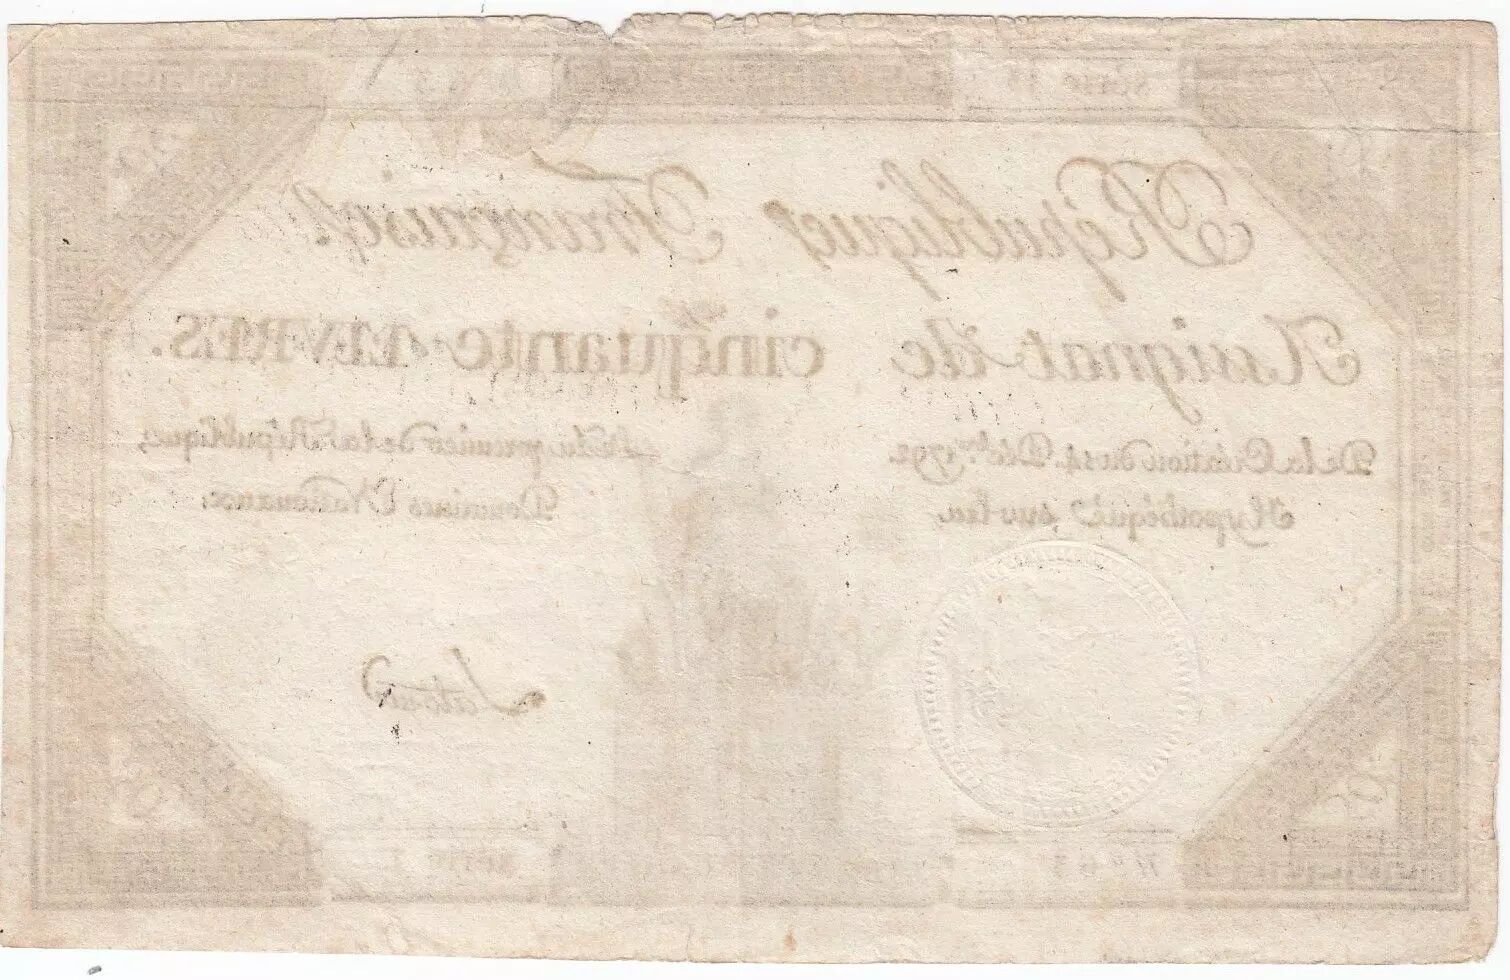 République Française.
Assignat de cinquante LIVRES.
De la Création du 14 Déc.bre 1792
Hypothéqué sur les
& du premier de la République,
Domaines Nationaux.